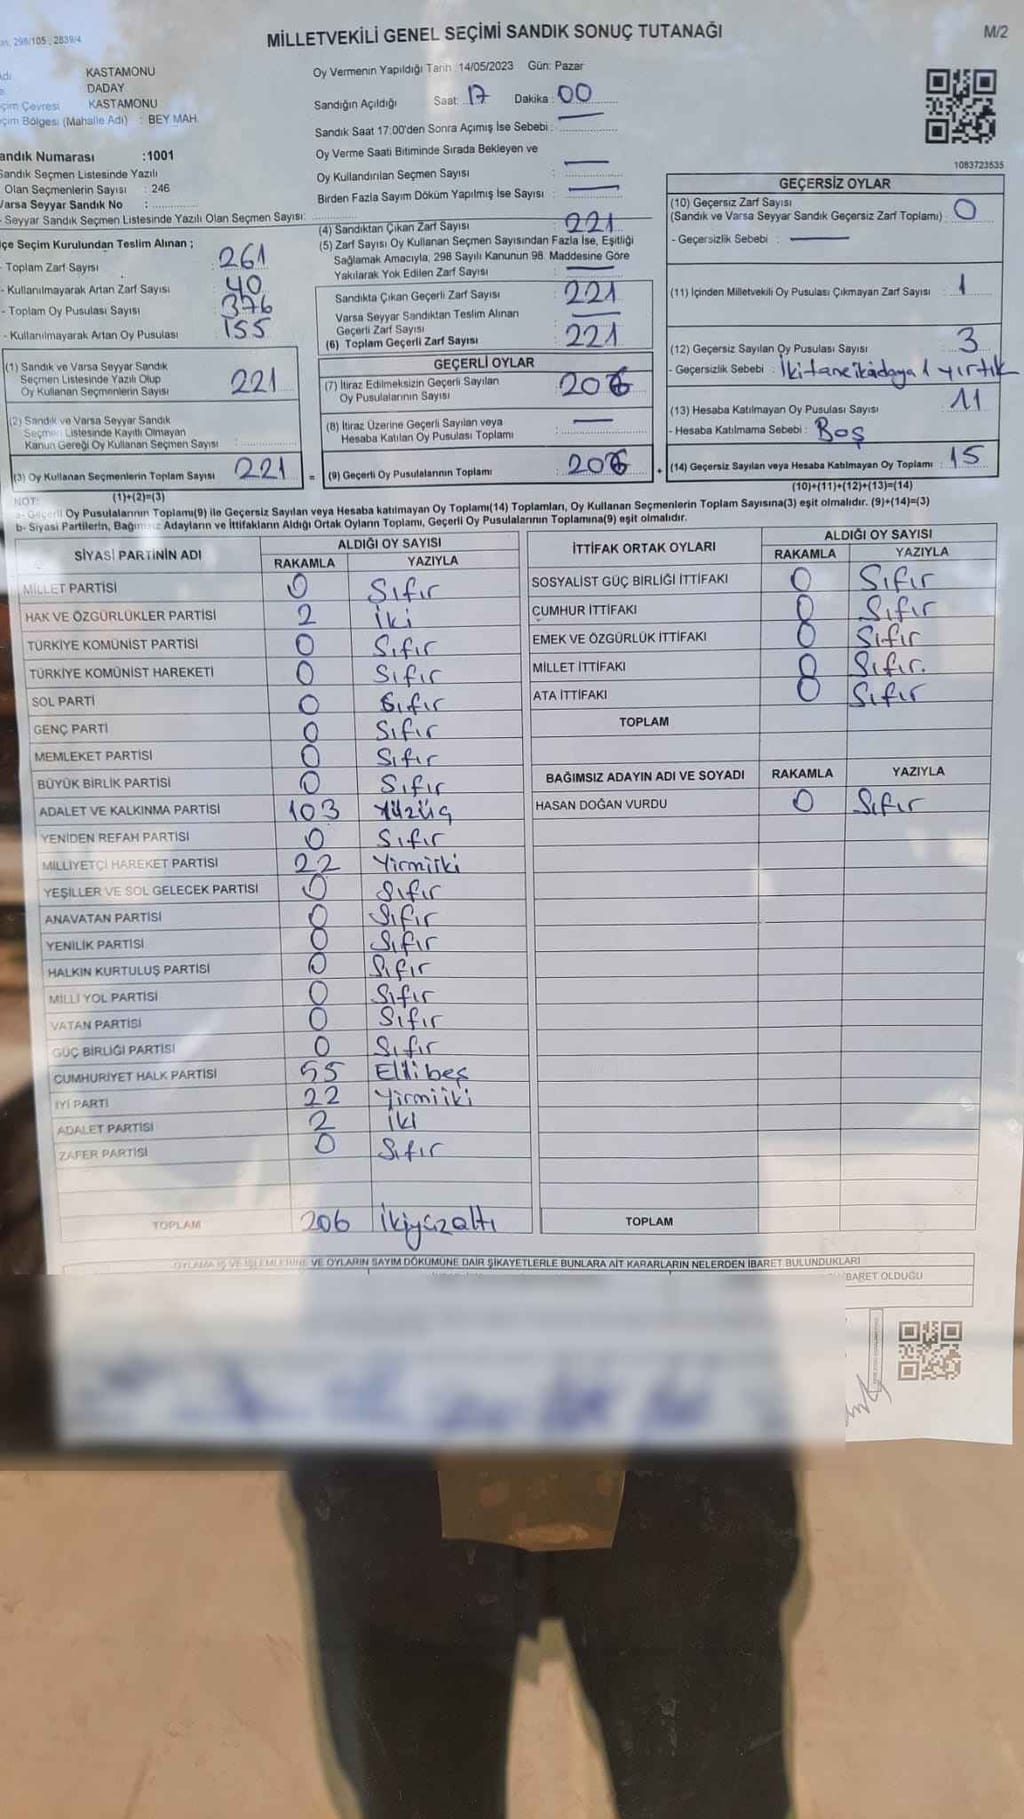 298/105, 2839/4
MİLLETVEKİLİ GENEL SEÇİMİ SANDIK SONUÇ TUTANAĞI
M/2
KASTAMONU
DADAY
çim Çevresi KASTAMONU
çim Bölgesi (Mahalle Adı) : BEY MAH.
andık Numarası :1001
Sandık Seçmen Listesinde Yazılı
Olan Seçmenlerin Sayısı : 246
Varsa Seyyar Sandık No :
- Seyyar Sandık Seçmen Listesinde Yazılı Olan Seçmen Sayısı:
Oy Vermenin Yapıldığı Tarih 14/05/2023 Gün: Pazar
Sandığın Açıldığı Saat: 17 Dakika : 00
Sandık Saat 17:00'den Sonra Açımış İse Sebebi :
Oy Verme Saati Bitiminde Sırada Bekleyen ve
Oy Kullandırılan Seçmen Sayısı : —
Birden Fazla Sayım Döküm Yapılmış İse Sayısı : —
1083723535
çe Seçim Kurulundan Teslim Alınan ;
- Toplam Zarf Sayısı : 261
- Kullanılmayarak Artan Zarf Sayısı : 40
- Toplam Oy Pusulası Sayısı : 376
- Kullanılmayarak Artan Oy Pusulası : 155
(1) Sandık ve Varsa Seyyar Sandık
Seçmen Listesinde Yazılı Olup
Oy Kullanan Seçmenlerin Sayısı : 221
(2) Sandık ve Varsa Seyyar Sandık
Seçmen Listesinde Kayıtlı Olmayan
Kanun Gereği Oy Kullanan Seçmen Sayısı :
(3) Oy Kullanan Seçmenlerin Toplam Sayısı 221
(4) Sandıktan Çıkan Zarf Sayısı : 221
(5) Zarf Sayısı Oy Kullanan Seçmen Sayısından Fazla İse, Eşitliği
Sağlamak Amacıyla, 298 Sayılı Kanunun 98. Maddesine Göre
Yakılarak Yok Edilen Zarf Sayısı : —
Sandıkta Çıkan Geçerli Zarf Sayısı : 221
Varsa Seyyar Sandıktan Teslim Alınan
Geçerli Zarf Sayısı : —
(6) Toplam Geçerli Zarf Sayısı : 221
GEÇERLİ OYLAR
(7) İtiraz Edilmeksizin Geçerli Sayılan
Oy Pusulalarının Sayısı : 206
(8) İtiraz Üzerine Geçerli Sayılan veya
Hesaba Katılan Oy Pusulası Toplamı : —
= (9) Geçerli Oy Pusulalarının Toplamı : 206 +
GEÇERSİZ OYLAR
(10) Geçersiz Zarf Sayısı
(Sandık ve Varsa Seyyar Sandık Geçersiz Zarf Toplamı) : 0
- Geçersizlik Sebebi : —
(11) İçinden Milletvekili Oy Pusulası Çıkmayan Zarf Sayısı : 1
(12) Geçersiz Sayılan Oy Pusulası Sayısı : 3
- Geçersizlik Sebebi : İki tane iki adaya 1 yırtık
(13) Hesaba Katılmayan Oy Pusulası Sayısı : 11
- Hesaba Katılmama Sebebi : Boş
(14) Geçersiz Sayılan veya Hesaba Katılmayan Oy Toplamı : 15
NOT: (1)+(2)=(3)
(10)+(11)+(12)+(13)=(14)
a- Geçerli Oy Pusulalarının Toplamı(9) ile Geçersiz Sayılan veya Hesaba katılmayan Oy Toplamı(14) Toplamları, Oy Kullanan Seçmenlerin Toplam Sayısına(3) eşit olmalıdır. (9)+(14)=(3)
b- Siyasi Partilerin, Bağımsız Adayların ve İttifakların Aldığı Ortak Oyların Toplamı, Geçerli Oy Pusulalarının Toplamına(9) eşit olmalıdır.
SİYASİ PARTİNİN ADI ALDIĞI OY SAYISI
RAKAMLA YAZIYLA
MİLLET PARTİSİ 0 Sıfır
HAK VE ÖZGÜRLÜKLER PARTİSİ 2 İki
TÜRKİYE KOMÜNİST PARTİSİ 0 Sıfır
TÜRKİYE KOMÜNİST HAREKETİ 0 Sıfır
SOL PARTİ 0 Sıfır
GENÇ PARTİ 0 Sıfır
MEMLEKET PARTİSİ 0 Sıfır
BÜYÜK BİRLİK PARTİSİ 0 Sıfır
ADALET VE KALKINMA PARTİSİ 103 Yüzüç
YENİDEN REFAH PARTİSİ 0 Sıfır
MİLLİYETÇİ HAREKET PARTİSİ 22 Yirmiiki
YEŞİLLER VE SOL GELECEK PARTİSİ 0 Sıfır
ANAVATAN PARTİSİ 0 Sıfır
YENİLİK PARTİSİ 0 Sıfır
HALKIN KURTULUŞ PARTİSİ 0 Sıfır
MİLLİ YOL PARTİSİ 0 Sıfır
VATAN PARTİSİ 0 Sıfır
GÜÇ BİRLİĞİ PARTİSİ 0 Sıfır
CUMHURİYET HALK PARTİSİ 55 Ellibeş
İYİ PARTİ 22 Yirmiiki
ADALET PARTİSİ 2 İki
ZAFER PARTİSİ 0 Sıfır
TOPLAM 206 İkiyüzaltı
İTTİFAK ORTAK OYLARI ALDIĞI OY SAYISI
RAKAMLA YAZIYLA
SOSYALİST GÜÇ BİRLİĞİ İTTİFAKI 0 Sıfır
CUMHUR İTTİFAKI 0 Sıfır
EMEK VE ÖZGÜRLÜK İTTİFAKI 0 Sıfır
MİLLET İTTİFAKI 0 Sıfır.
ATA İTTİFAKI 0 Sıfır
TOPLAM
BAĞIMSIZ ADAYIN ADI VE SOYADI RAKAMLA YAZIYLA
HASAN DOĞAN VURDU 0 Sıfır
TOPLAM
OYLAMA İŞ VE İŞLEMLERİNE VE OYLARIN SAYIM DÖKÜMÜNE DAİR ŞİKAYETLERLE BUNLARA AİT KARARLARIN NELERDEN İBARET BULUNDUKLARI
İBARET OLDUĞU